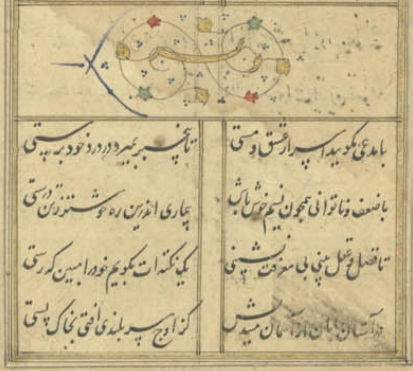 با مدعی مکویید اسرار عشق و مستی تا بیخبر بمیرد در درد خود پرستی
با ضعف و ناتوانی همچون نسیم خوش باش بیماری اندرین ره خوشتر ز تن درستی
تا فضل و عقل بینی بی معرفت نشینی یک نکته ات بکویم خود را مبین که رستی
در آستان جانان از آسمان میندیش کز اوج سر بلندی افتی بخاک پستی